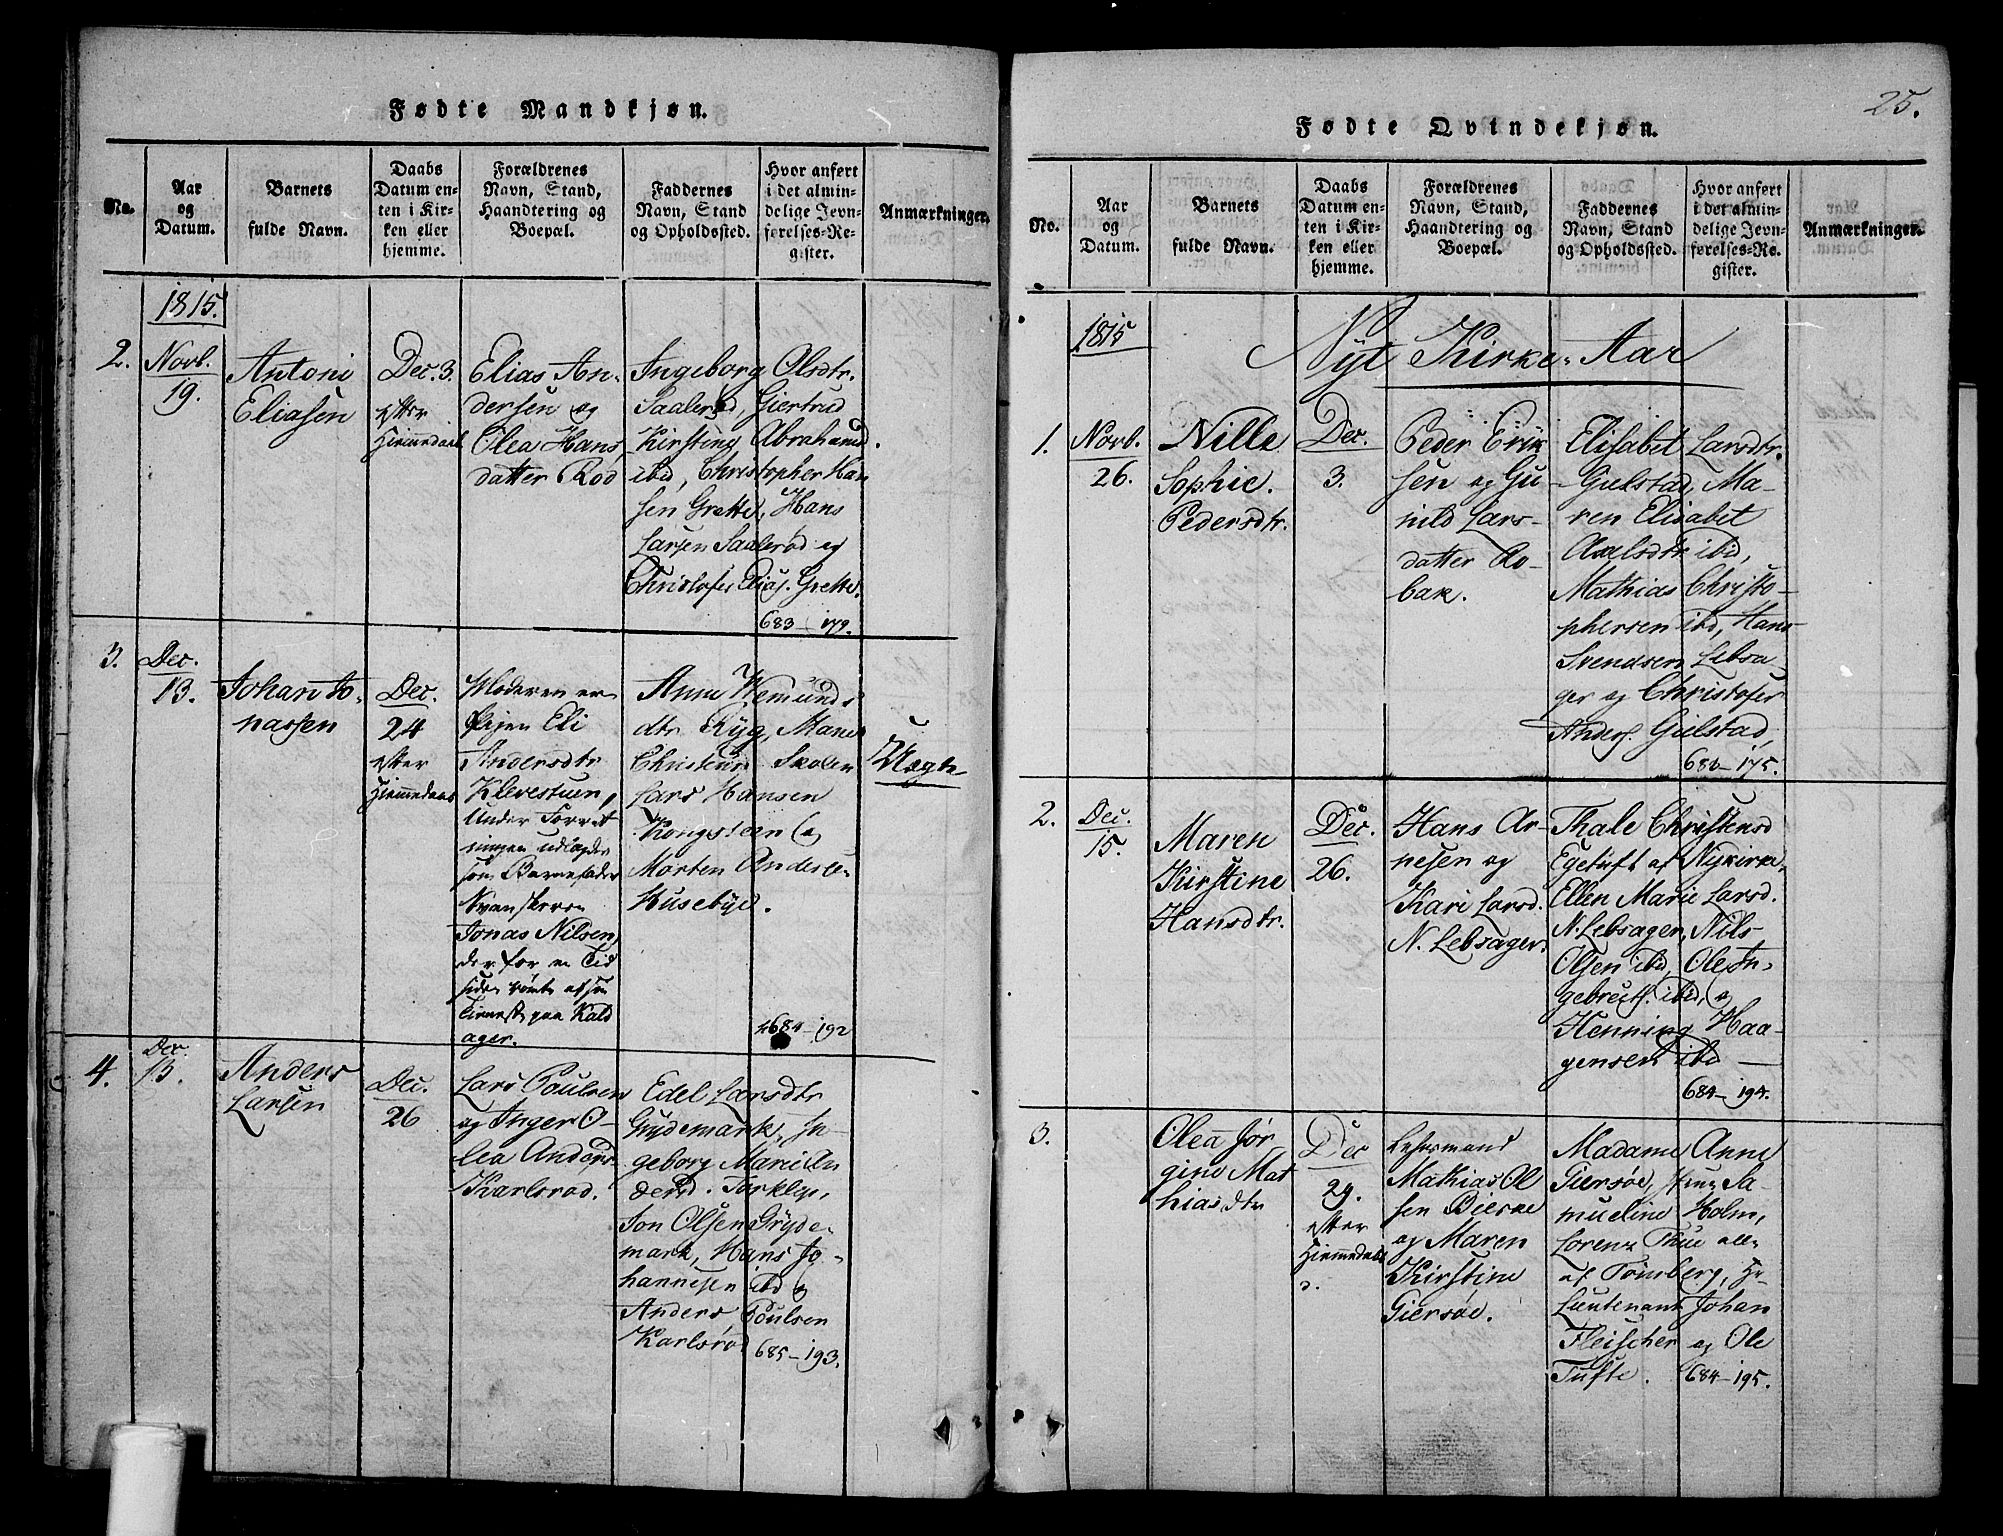 Fødte Mandkjøn.
No.
Aar
og
Datum.
Barnets
fulde Navn.
Daabs
Datum en-
ten i Kir-
ken eller
hjemme.
Forældrenes
Navn, Stand,
Haandtering og
Boepæl.
Faddernes
Navn, Stand
og Opholdssted.
Hvor anført
i det almin-
delige Jevn-
førelses-Re-
gister.
Anmærkninger.
1815.
2.
Novb.
19.
Antoni
Eliasen
Dec. 3.
efter
Hiemmedaab
Elias An-
dersen og
Olea Hans
datter Rød
Ingeborg Olsdtr.
Saalerød, Giertrud
Kirsting Abrahamsd.
ibid, Christopher Han
sen Grette, Hans
Larsen Saalerød og
Christofer Elias. Grette.
683 - 179.
3.
Dec.
13.
Johan Jo-
nassen
Dec.
24
efter
Hiemmedaab
Moderen er
Pigen Eli
Andersdtr
Klevestuen,
under Forret
ningen udlagde
som Barnefader
Svenskeren
Jonas Nilsen,
der for en Tid
siden rømte af sin
Tieneste paa Kald
ager.
Anne Wemunds
dtr Ryg, Maren
Christine Skalen
Lars Hansen
Kongsteen og
Morten Anderse-
Husebye.
684 - 192
Uægte
4.
Dec.
13.
Anders
Larsen
Dec.
26
Lars Poulsen
og Inger O-
lea Anders
Karlsrød.
Edel Larsdtr
Grydemark, In-
geborg Marie An
dersd. Torklep,
Jon Olsen Gryde-
mark, Hans Jo-
hannesen ibd og
Anders Poulsen
Karlsrød
685 - 193.
25.
Fødte Qvindekjøn.
No.
Aar
og
Datum.
Barnets
fulde Navn.
Daabs
Datum en-
ten i Kir-
ken eller
hjemme.
Forældrenes
Navn, Stand,
Haandtering og
Boepæl.
Faddernes
Navn, Stand
og Opholdssted.
Hvor anført
i det almin-
delige Jevn-
førelses-Re-
gister.
Anmærkninger.
1815
Nyt Kirke-Aar
1.
Novb.
26.
Nille
Sophie.
Pedersdtr.
Dec.
3.
Peder Erik
sen og Gu-
nild Lars-
datter Ro-
bak.
Elisabet Larsdtr.
Gulstad, Ma-
ren Elisabet
Axelsdtr ibid,
Mathias Christo-
phersen ibd, Hans
Svendsen Lebsa-
ger og Christofer
Anders. Gulstad,
683 - 175.
2.
Dec.
15.
Maren
Kirstine
Hansdtr.
Dec.
26.
Hans Ar-
nesen og
Kari Larsd.
N. Lebsager.
Thale Christensd
Egetuft af Nykirke,
Ellen Marie Larsd.
N. Lebsager, Nils
Olsen ibid, Ole In-
gebretf. ibid, og
Henning Haa-
gensen ibid
684 - 194.
3.
Olea Jør-
gine Mat
hiasdtr
Dec
29.
efter
Hiemmedaab
Mathias Ol
sen Bierke
og Maren
Kirstine
Giersøe.
Madame Anne
Giersøe, Sa-
mueline Holm,
Lorenz Thue alle
af Tønsberg, Hr
Lieutenant Johan
Fleischer og Ole
Tufte.
684 - 195.